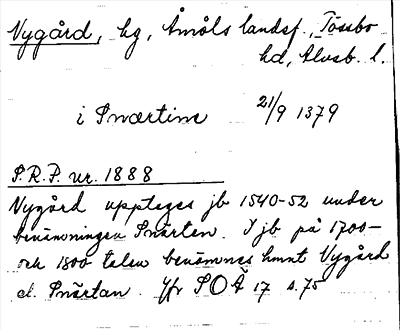 Nygård, hg, Åmåls landsf., Tössbo
hd, Älvsb. l.
i Snærtine 21/9 1379
S.R.P. nr. 1888
Nygård upptages jb 1540-52 under
benämningen Snärten. I jb på 1700-
och 1800 talen benämnes hmnt Nygård
el. Snärtan. Jfr SOÄ 17 s. 75